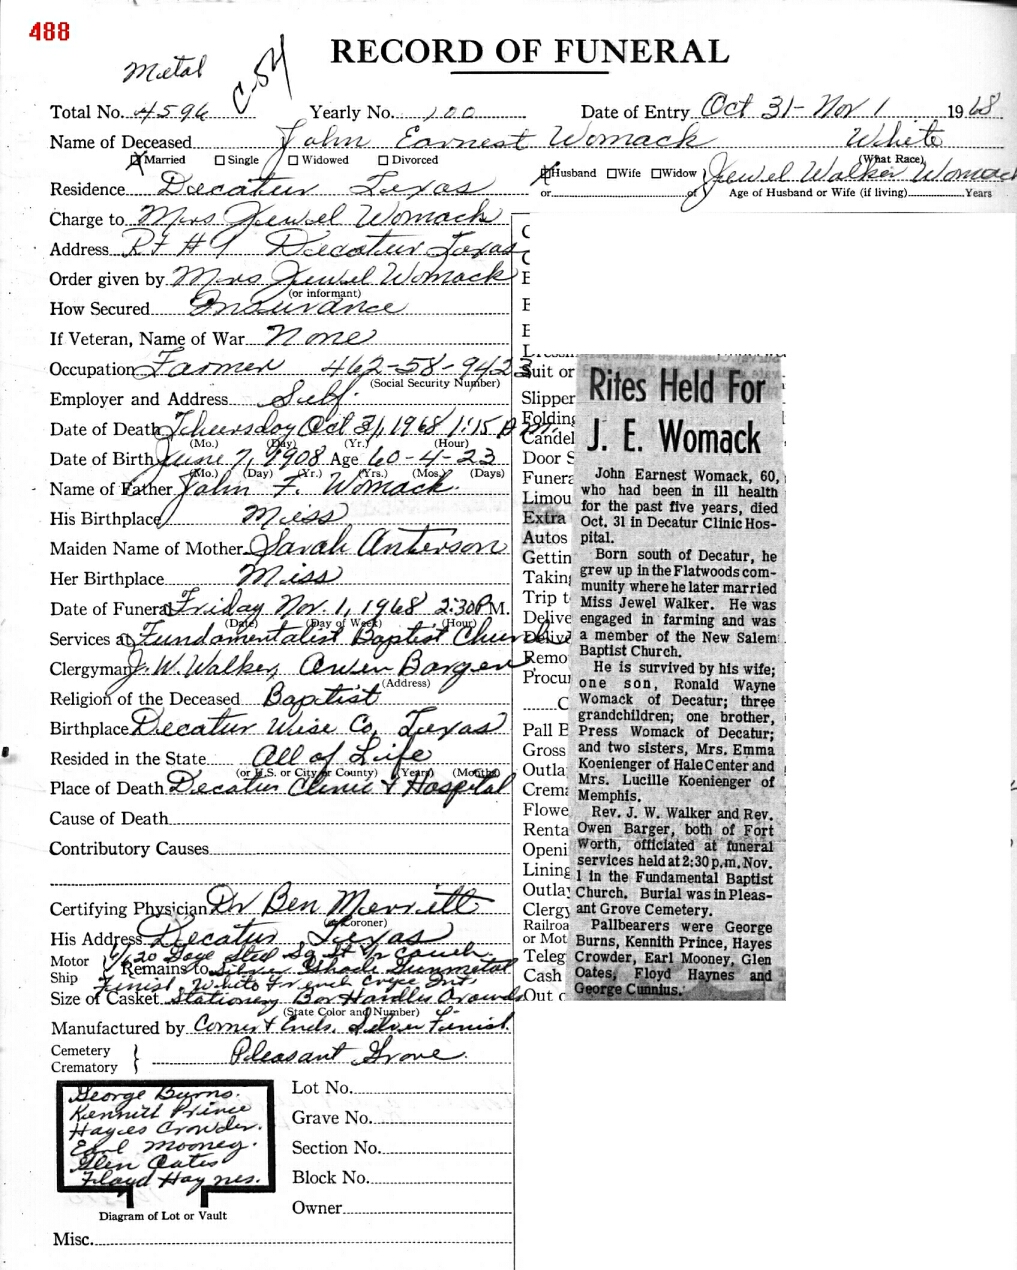 488
RECORD OF FUNERAL
Metal
C-54
Total No. 4596 Yearly No. 100 Date of Entry Oct 31- Nov 1 1968
Name of Deceased John Earnest Womack White
Married Single Widowed Divorced (What Race)
Husband Wife Widow Jewel Walker Womack
Residence Decatur Texas or of Age of Husband or Wife (if living) Years
Charge to Mrs Jewel Womack
Address Rt # 1 Decatur Texas
Order given by Mrs Jewel Womack
(or informant)
How Secured Insurance
If Veteran, Name of War None
Occupation Farmer 462-58-9423
(Social Security Number)
Employer and Address Self.
Date of Death Thursday Oct 31, 1968 1:15 P.M.
(Mo.) (Day) (Yr.) (Hour)
Date of Birth June 7, 1908 Age 60-4-23
(Mo.) (Day) (Yr.) (Yrs.) (Mos.) (Days)
Name of Father John F. Womack
His Birthplace Miss
Maiden Name of Mother Sarah Anterson
Her Birthplace Miss
Date of Funeral Friday Nov. 1, 1968 2:30 P.M.
(Date) (Day of Week) (Hour)
Services at Fundamentalist Baptist Church
Clergyman J. W. Walker, Owen Barger
(Address)
Religion of the Deceased Baptist
Birthplace Decatur Wise Co, Texas
Resided in the State All of Life
(or U.S. or City or County) (Years) (Months)
Place of Death Decatur Clinic & Hospital
Cause of Death
Contributory Causes
Certifying Physician Dr Ben Merritt
(or Coroner)
His Address Decatur Texas
Motor
Ship
Remains to Silver Shade Gunmetal
Finish. White French Crepe Int.
Size of Casket Stationery Bar Handles Around
(State Color and Number)
Manufactured by Corner & Ends. Silver Finish.
Cemetery
Crematory
Pleasant Grove.
George Burns.
Kennith Prince
Hayes Crowder.
Earl Mooney.
Glen Oates
Floyd Haynes.
Diagram of Lot or Vault
Lot No.
Grave No.
Section No.
Block No.
Owner
Misc.
Suit or
Slipper
Folding
Candel
Door S
Funera
Limou
Extra
Autos
Gettin
Taking
Trip t
Delive
Delive
Remo
Procur
C
Pall B
Gross
Outla
Crema
Flowe
Renta
Openi
Lining
Outlay
Clergy
Railroa
or Mot
Teleg
Cash
Out o
Rites Held For
J. E. Womack
John Earnest Womack, 60,
who had been in ill health
for the past five years, died
Oct. 31 in Decatur Clinic Hos-
pital.
Born south of Decatur, he
grew up in the Flatwoods com-
munity where he later married
Miss Jewel Walker. He was
engaged in farming and was
a member of the New Salem
Baptist Church.
He is survived by his wife;
one son, Ronald Wayne
Womack of Decatur; three
grandchildren; one brother,
Press Womack of Decatur;
and two sisters, Mrs. Emma
Koenienger of Hale Center and
Mrs. Lucille Koenienger of
Memphis.
Rev. J. W. Walker and Rev.
Owen Barger, both of Fort
Worth, officiated at funeral
services held at 2:30 p.m. Nov.
1 in the Fundamental Baptist
Church. Burial was in Pleas-
ant Grove Cemetery.
Pallbearers were George
Burns, Kennith Prince, Hayes
Crowder, Earl Mooney, Glen
Oates, Floyd Haynes and
George Cunnius.